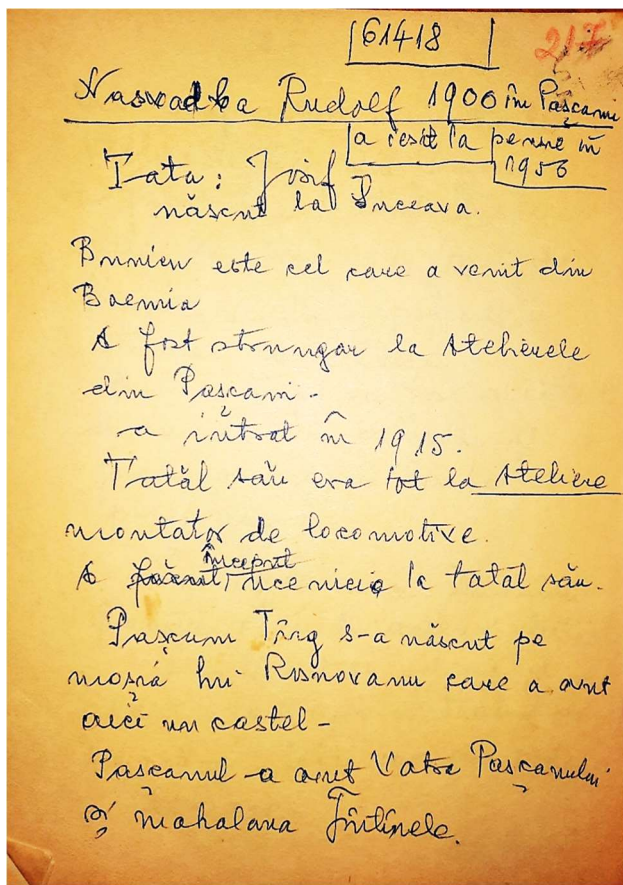 61418
217
Nasvadba Rudolf 1900 în Pașcani
a iesit la pensie in
1956
Tata: Josif
născut la Suceava.
Bunicu este cel care a venit din
Boemia
A fost strungar la Atelierele
din Pașcani -
a intrat în 1915.
Tatăl său era tot la Ateliere
montator de locomotive.
început
A făcut ucenicia la tatăl său.
Pașcani Tîrg s-a născut pe
moșia lui Rosnovanu care a avut
aici un castel -
Pașcanul a avut Vatra Pașcanului
și mahalaua Fîntînele.